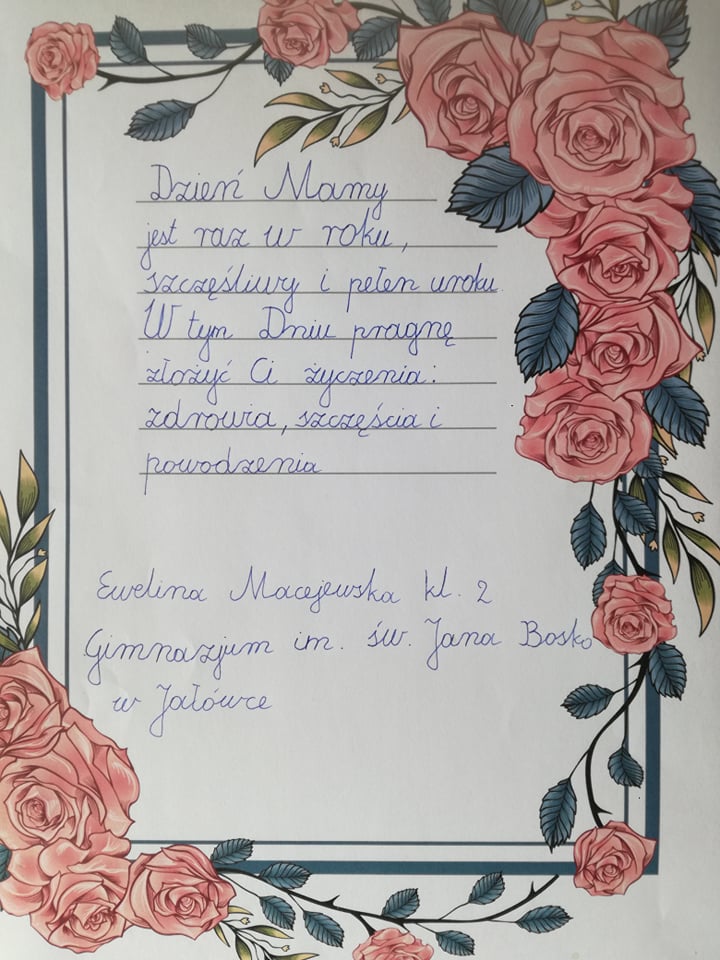 Dzień Mamy
jest raz w roku,
szczęśliwy i pełen uroku.
W tym Dniu pragnę
złożyć Ci życzenia:
zdrowia, szczęścia i
powodzenia
Ewelina Macejewska kl. 2
Gimnazjum im. św. Jana Bosko
w Jałówce